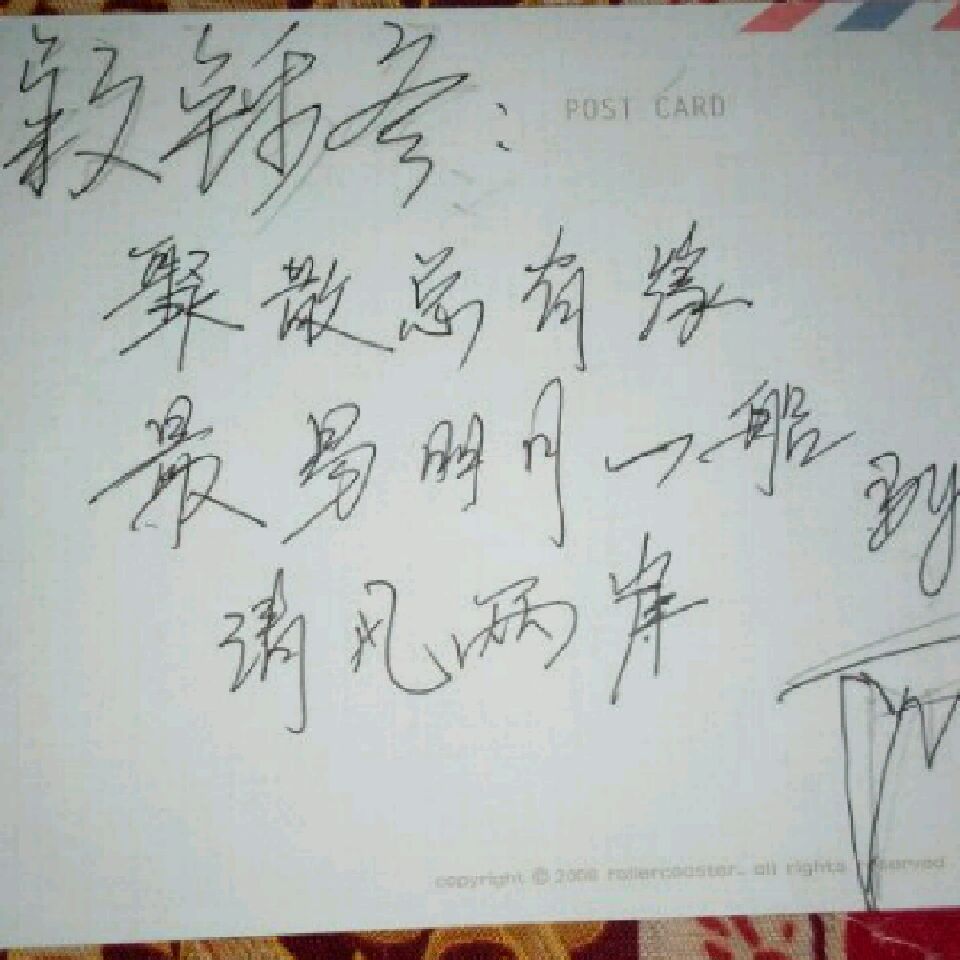 POST CARD
聚散总有缘
最易明月一船
清风两岸
copyright © 2008 rollercoaster. all rights reserved